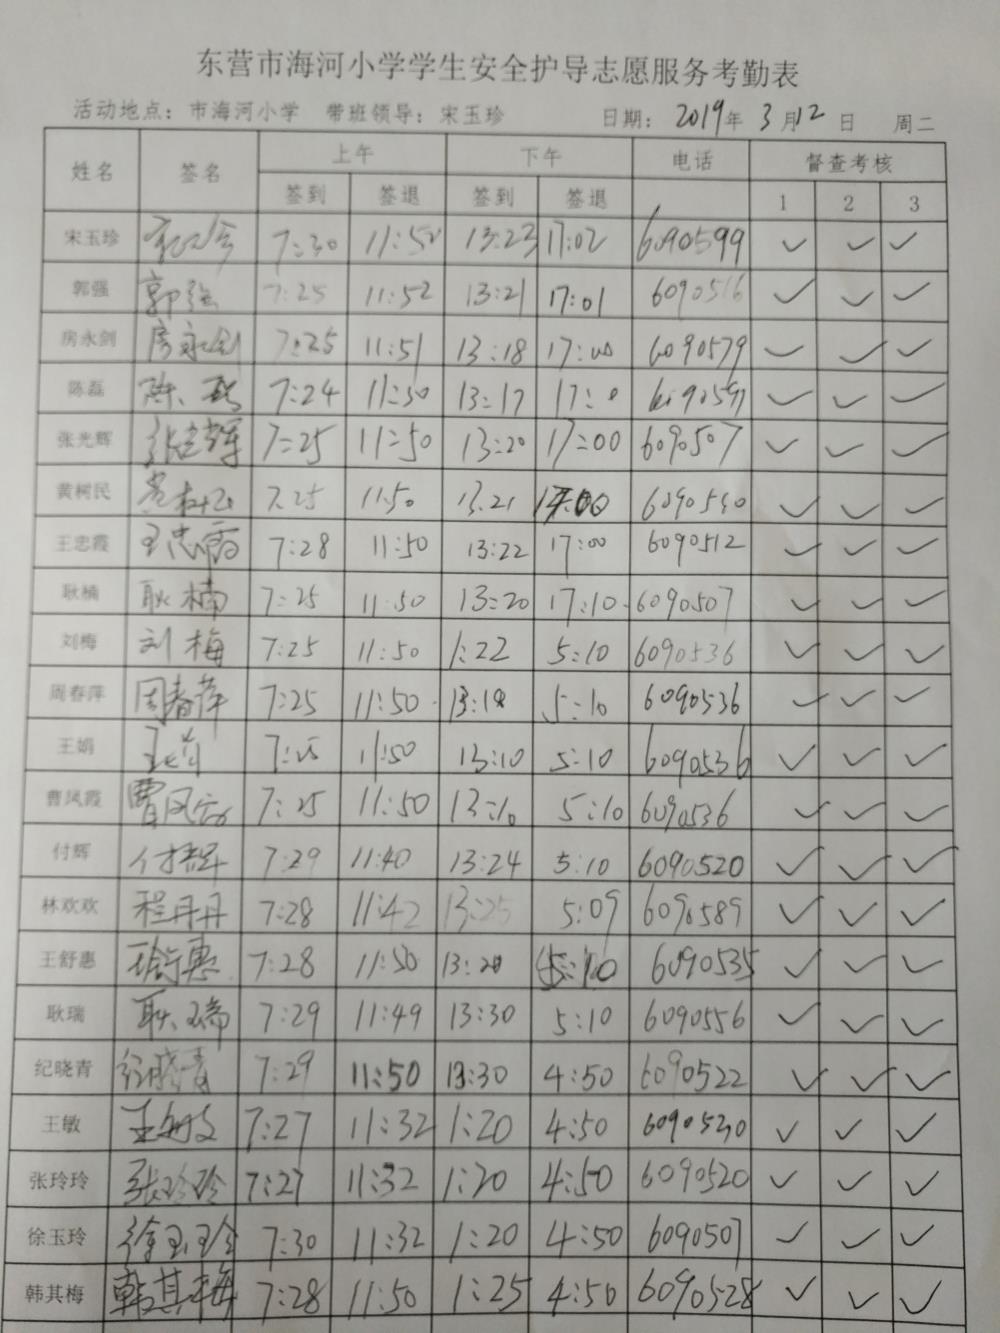 东营市海河小学学生安全护导志愿服务考勤表
活动地点：市海河小学 带班领导：宋玉珍 日期：2019年3月12日 周二
姓名 签名 上午 下午 电话 督查考核
签到 签退 签到 签退 1 2 3
宋玉珍 7:30 11:52 13:23 17:02 6090599 ✓ ✓ ✓
郭强 郭强 7:25 11:52 13:21 17:01 6090516 ✓ ✓ ✓
房永剑 房永剑 7:25 11:51 13:18 17:00 6090579 ✓ ✓ ✓
陈磊 陈磊 7:24 11:50 13:17 17:0 ✓ ✓ ✓
张光辉 张光辉 7:25 11:50 13:20 17:00 6090507 ✓ ✓ ✓
黄树民 黄树民 7:25 11:50 13:21 17:00 6090530 ✓ ✓ ✓
王忠霞 王忠霞 7:28 11:50 13:22 17:00 6090512 ✓ ✓ ✓
耿楠 耿楠 7:25 11:50 13:20 17:10 6090507 ✓ ✓ ✓
刘梅 刘梅 7:25 11:50 1:22 5:10 6090536 ✓ ✓ ✓
周春萍 周春萍 7:25 11:50 13:18 5:10 6090536 ✓ ✓ ✓
王娟 7:25 11:50 13:10 5:10 6090536 ✓ ✓ ✓
曹凤霞 曹凤霞 7:25 11:50 13:10 5:10 6090536 ✓ ✓ ✓
付辉 付辉 7:29 11:40 13:24 5:10 6090520 ✓ ✓ ✓
林欢欢 程丹丹 7:28 11:42 13:25 5:09 6090589 ✓ ✓ ✓
王舒惠 王舒惠 7:28 11:50 13:20 5:10 6090535 ✓ ✓ ✓
耿瑞 耿瑞 7:29 11:49 13:30 5:10 6090556 ✓ ✓ ✓
纪晓青 纪晓青 7:29 11:50 13:30 4:50 6090522 ✓ ✓ ✓
王敏 王敏 7:27 11:32 1:20 4:50 6090530 ✓ ✓ ✓
张玲玲 张玲玲 7:27 11:32 1:20 4:50 6090520 ✓ ✓ ✓
徐玉玲 徐玉玲 7:30 11:32 1:20 4:50 6090507 ✓ ✓ ✓
韩其梅 韩其梅 7:28 11:50 1:25 4:50 6090528 ✓ ✓ ✓